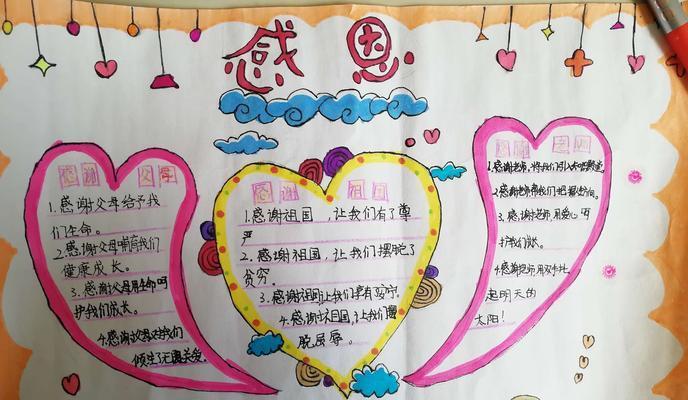 感恩
感谢 父母
1.感谢父母给予我
们生命。
2.感谢父母哺育我们
健康成长。
3.感谢父母用生命呵
护我们成长。
4.感谢父母对我们
倾注了无限关爱。
感谢 祖国
1.感谢祖国,让我们有了尊
严
2.感谢祖国,让我们摆脱了
贫穷。
3.感谢祖国让我们享有安宁
4.感谢祖国,让我们
脱屈辱。
感谢老师,将我们引入知识
2.感谢老师帮我们把握
3.感谢老师,用爱心呵
护我们成长。
4.感谢老师用双手托
起明天的
太阳!